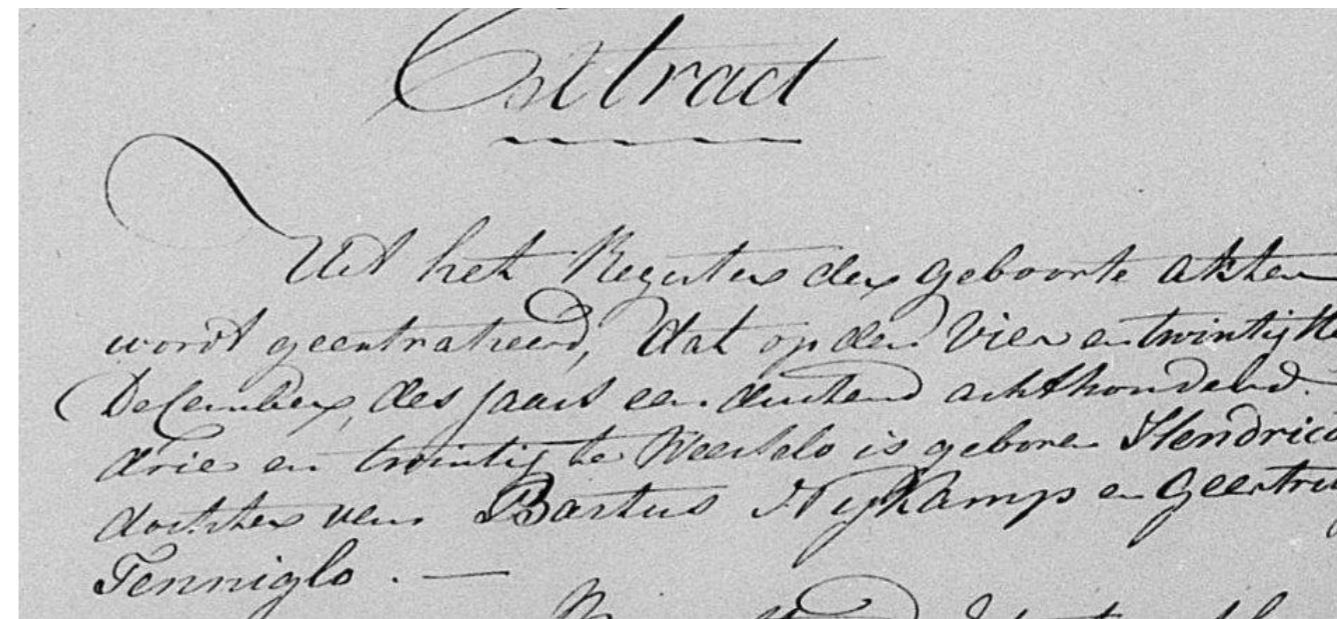 Extract
Uit het Register der geboorte akten
wordt geextraheerd, dat op den vier en twintigste
December, des jaars een duizend achthonderd
drie en twintig te Weerselo is geboren Hendrica
dochter van Bartus Nijkamp en Geertru
Tenniglo. —